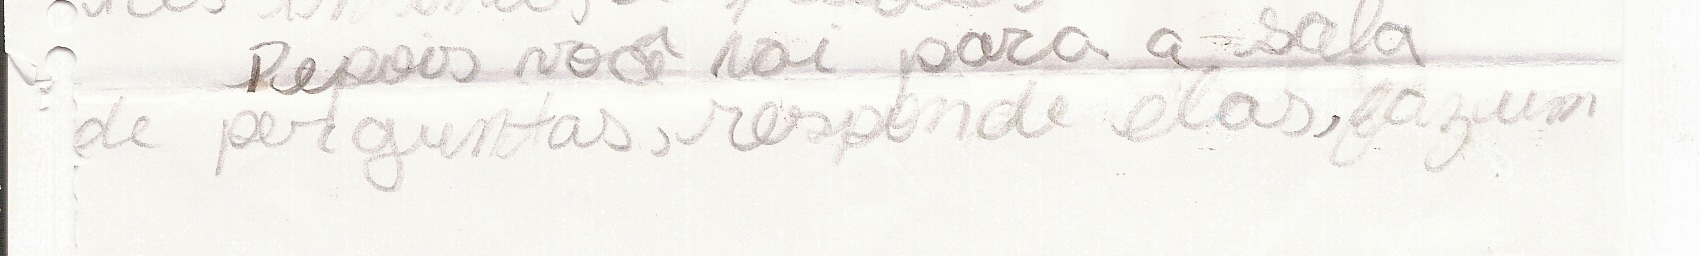 Depois você vai para a sala
de perguntas, responde elas, faz um